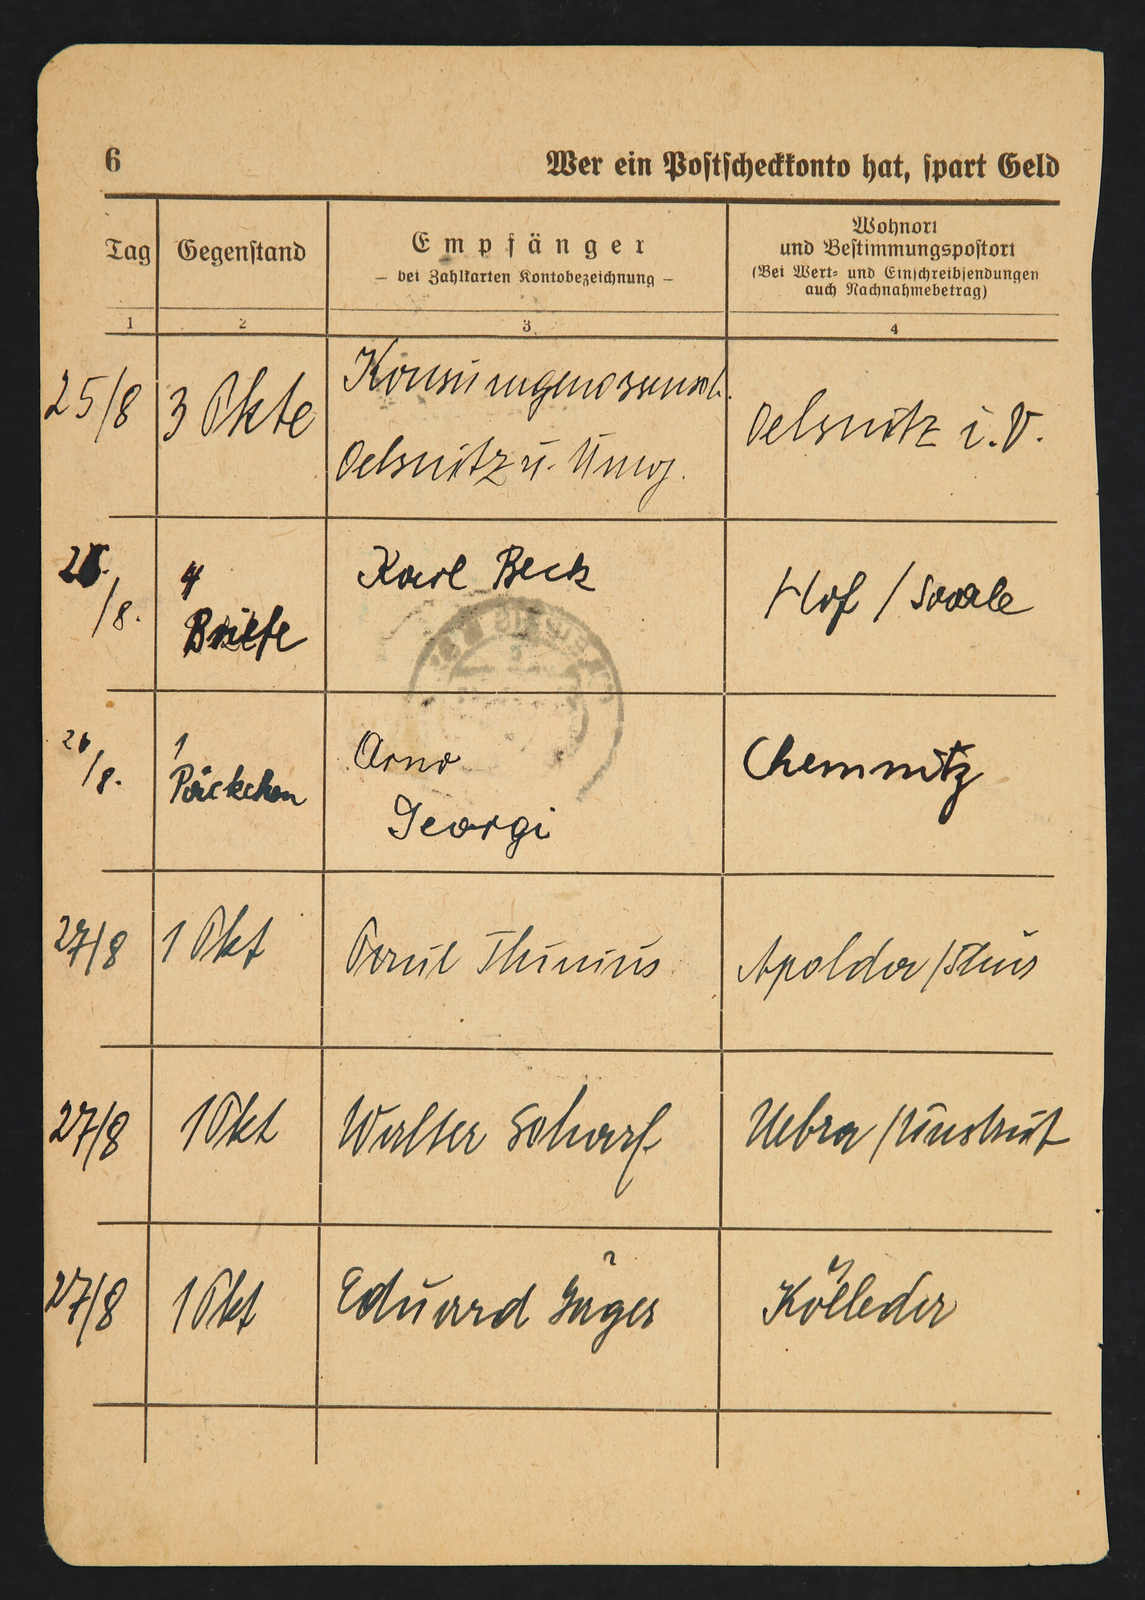 6
Wer ein Postscheckkonto hat, spart Geld
Tag
Gegenstand
Empfänger
– bei Zahlkarten Kontobezeichnung –
Wohnort
und Bestimmungspostort
(Bei Wert- und Einschreibsendungen
auch Nachnahmebetrag)
1 2 3 4
25/8 3 Pkte Konsumgenossensch. Oelsnitz i. V.
Oelsnitz u. Umg.
26. /8. 4 Briefe Karl Beck Hof / Saale
26 /8. 1 Päckchen Arno Chemnitz
Georgi
27/8 1 Pkt Paul Thunius Apolda / Thür
27/8 1 Pkt Walter Scharf Nebra / Unstrut
27/8 1 Pkt Eduard Jäger Kölleda